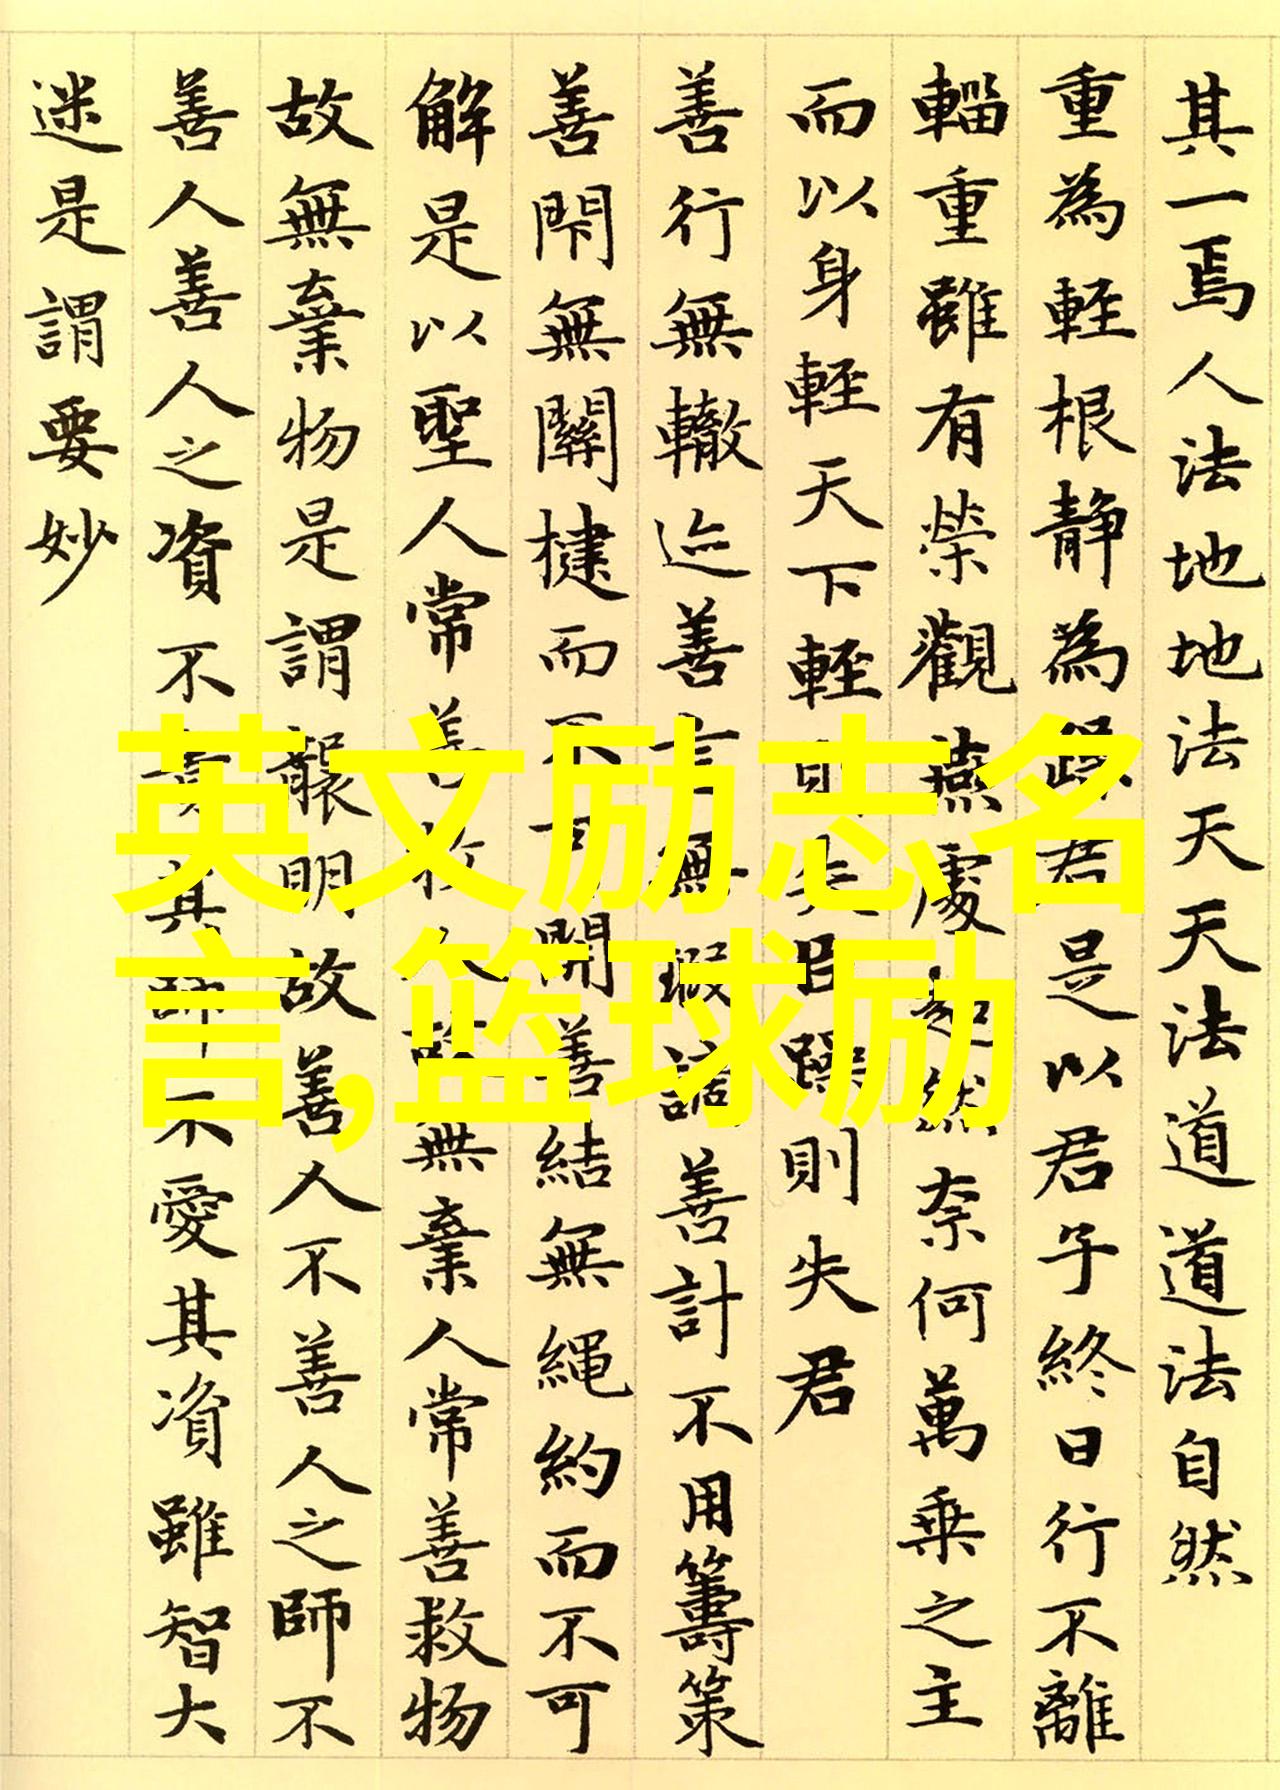 其一焉人法地地法天天法道道法自然
重為輕根靜為躁君是以君子終日行不離
輜重雖有榮觀燕處超然奈何萬乘之主
而以身輕天下輕則失臣躁則失君
善行無轍迹善言無瑕謫善計不用籌策
善閇無關楗而不可開善結無繩約而不可
解是以聖人常善救人故無棄人常善救物
故無棄物是謂襲明故善人不善人之師不
善人善人之資不貴其師不愛其資雖智大
迷是謂要妙
英文励志名
言,篮球励